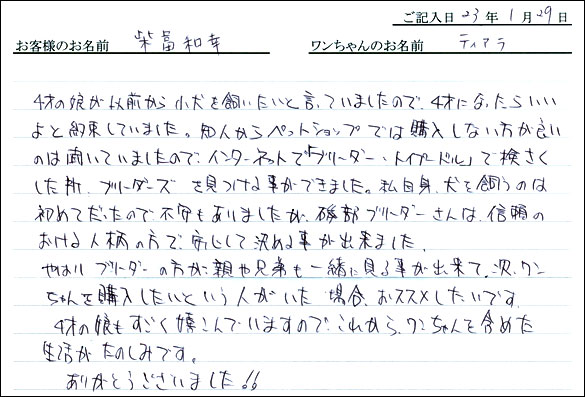 ご記入日 23年 1月 29日
お客様のお名前 柴冨和幸 ワンちゃんのお名前 ティアラ
4才の娘が以前から小犬を飼いたいと言っていましたので、4才になったらいい
よと約束していました。知人からペットショップでは購入しない方が良い
のは聞いていましたので、インターネットで「ブリーダー、トイプードル」で検さく
した所、ブリーダーズを見つける事ができました。私自身、犬を飼うのは
初めてだったので不安もありましたが、磯部ブリーダーさんは、信頼の
おける人柄の方で安心して決める事が出来ました。
やはりブリーダーの方が親や兄弟も一緒に見る事が出来て、次、ワン
ちゃんを購入したいという人がいた場合、おススメしたいです。
4才の娘もすごく嬉こんでいますので、これから、ワンちゃんを含めた
生活がたのしみです。
ありがとうございました!!